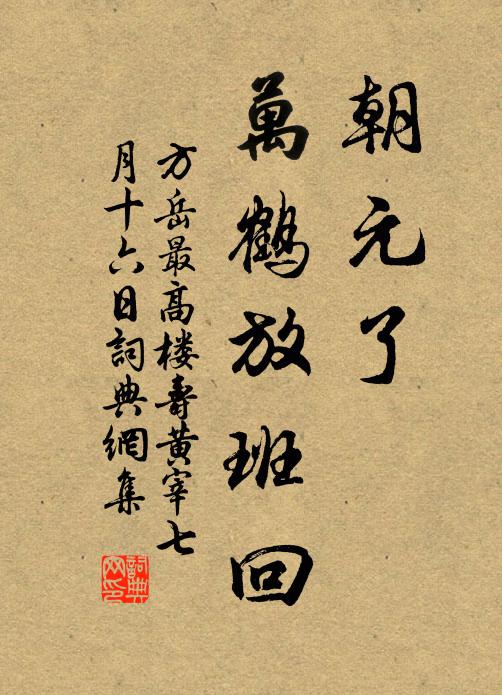 朝元了
萬鶴放班回
方岳最高楼壽黃宰七
月十六日詞典網集
詞典网印